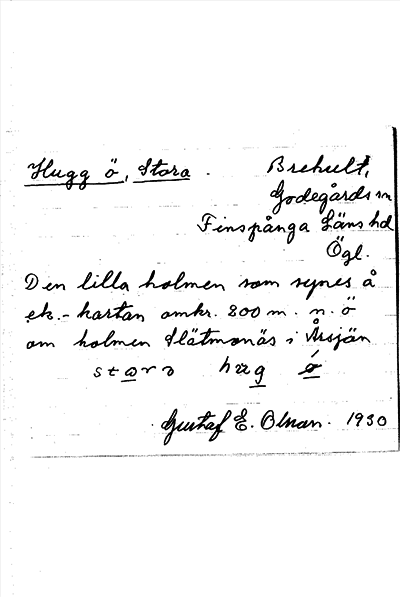 Hugg ö, Stora. Brehult,
Godegårds sn
Finspånga Läns hd
Ögl.
Den lilla holmen som synes å
ek.-kartan omkr. 800 m. n. ö
om holmen Slätmonäs i Årsjön
stora hug ö
Gustaf E. Olson. 1930